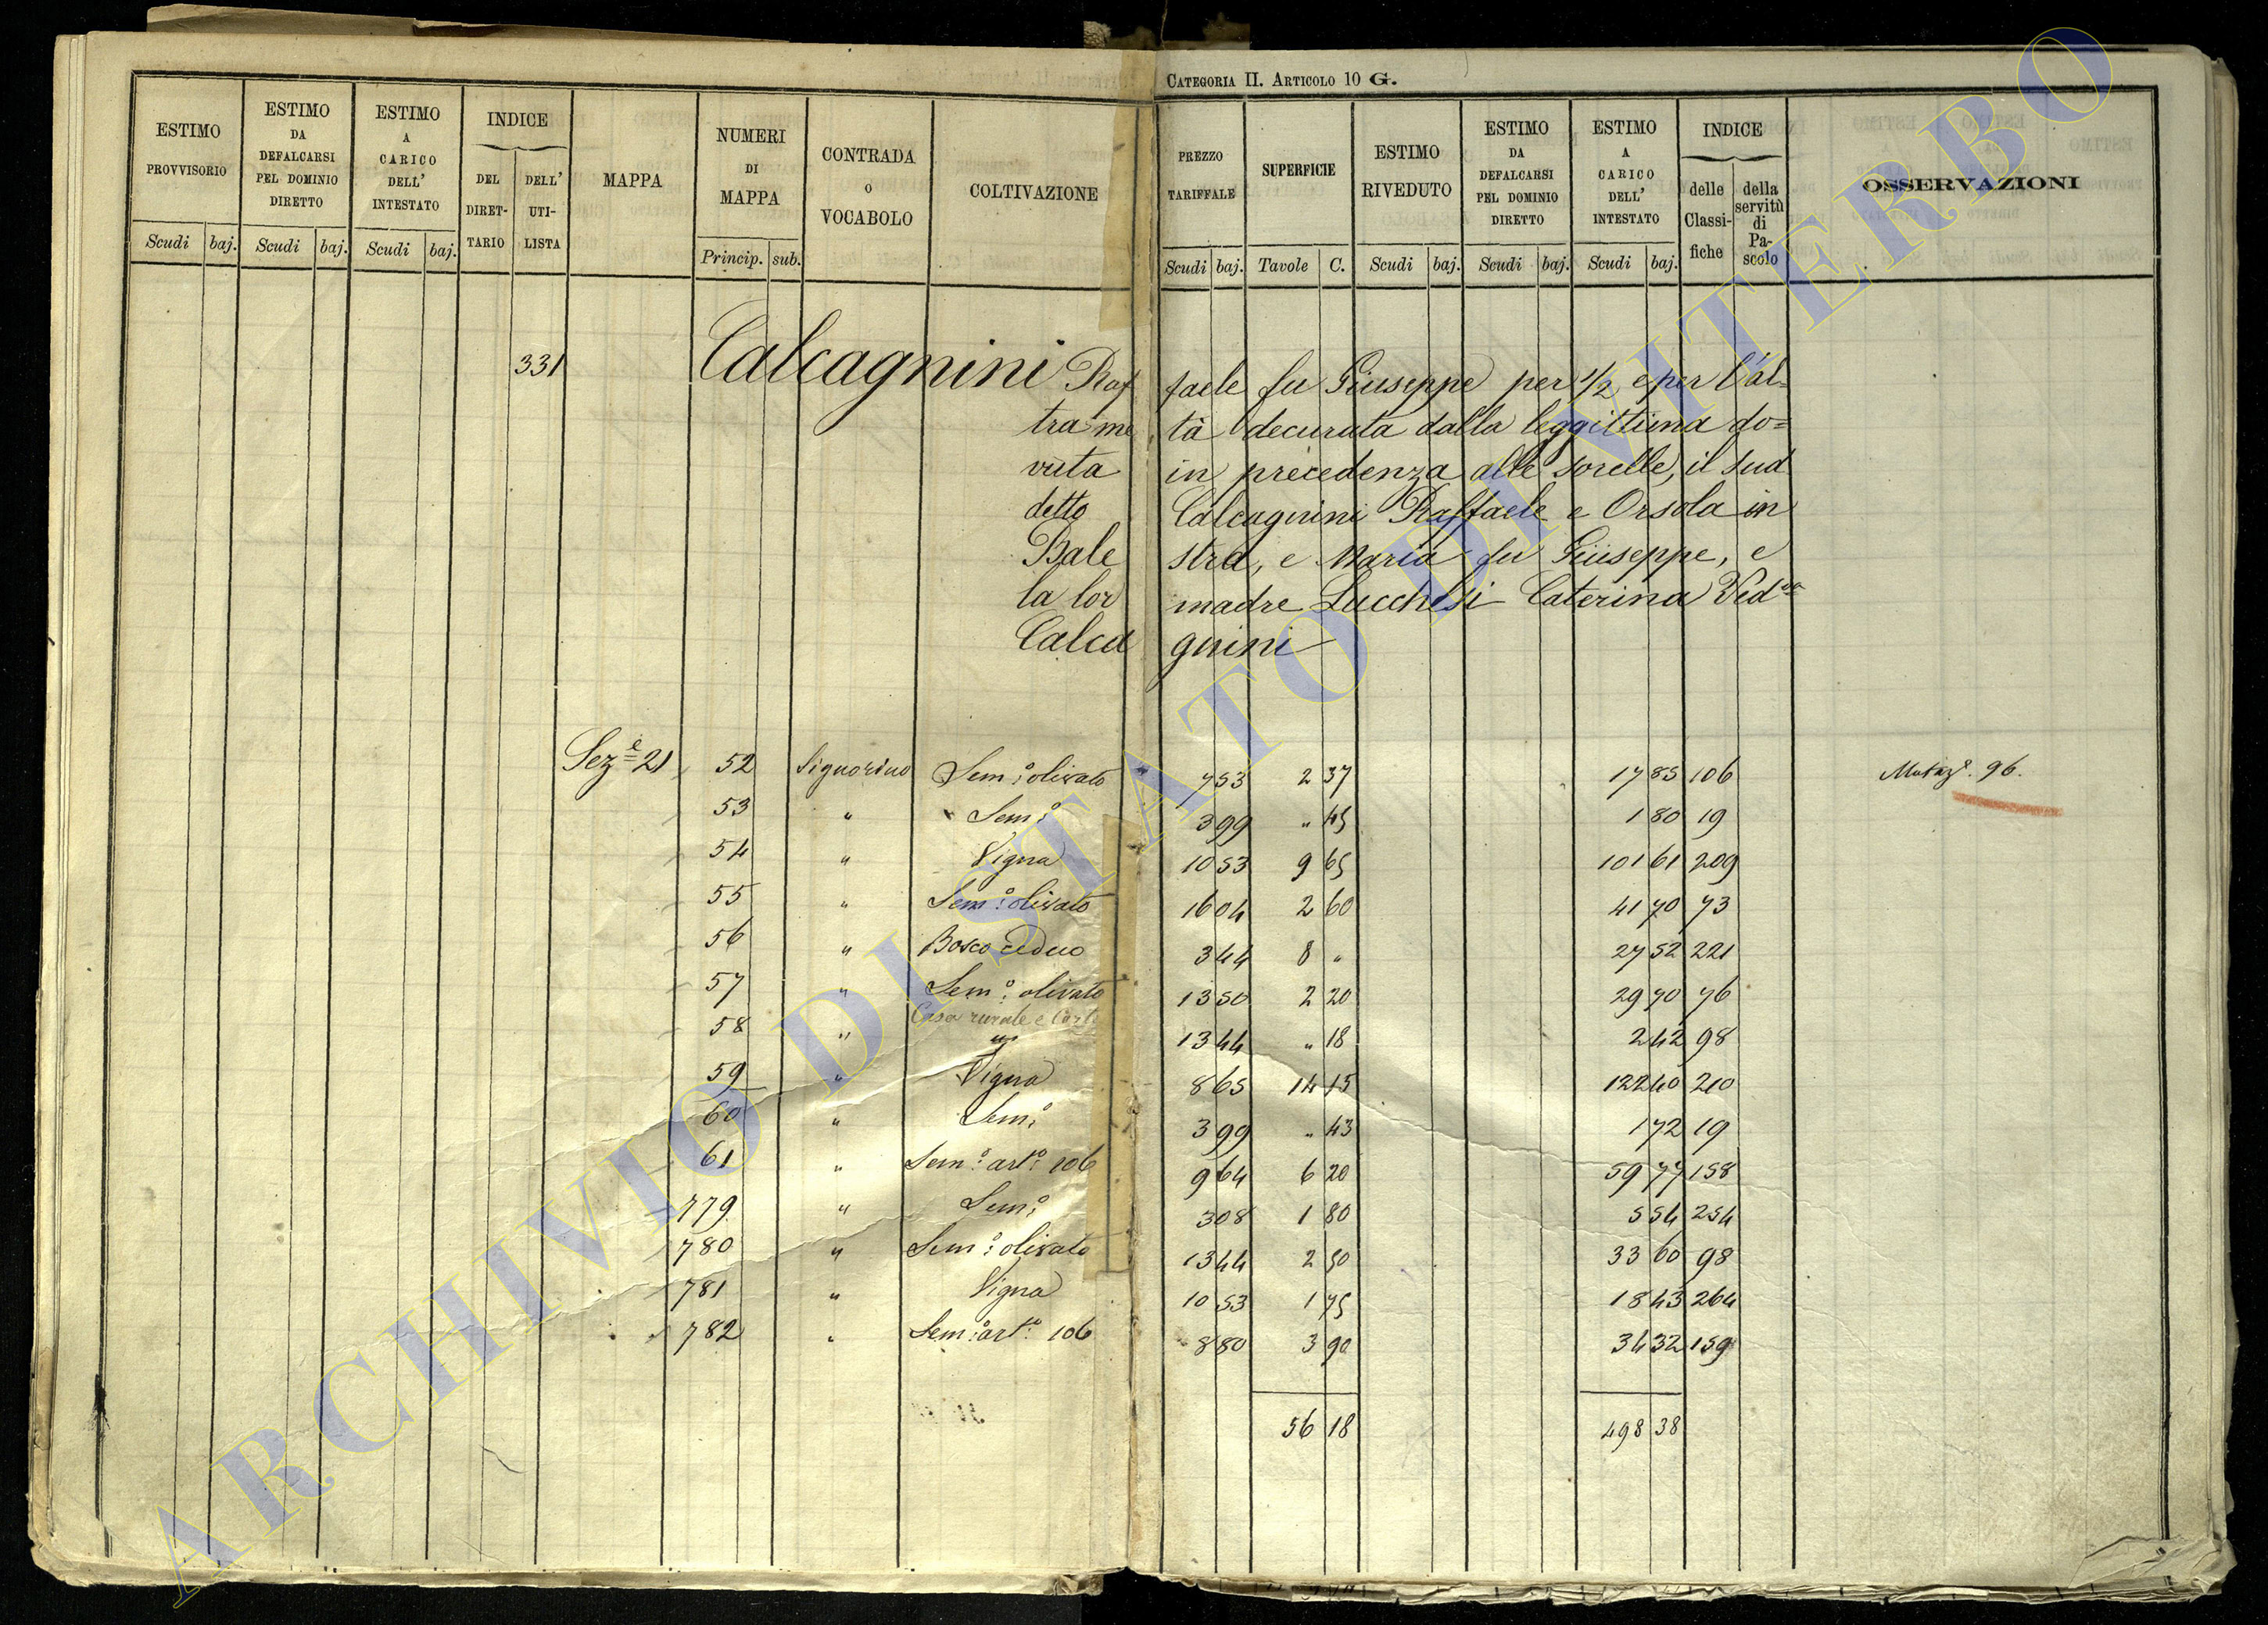 CATEGORIA II. ARTICOLO 10 G.
ESTIMO PROVVISORIO Scudi baj.
ESTIMO DA DEFALCARSI PEL DOMINIO DIRETTO Scudi baj.
ESTIMO A CARICO DELL' INTESTATO Scudi baj.
INDICE DEL DIRET-TARIO DELL' UTI-LISTA
MAPPA
NUMERI DI MAPPA Princip. sub.
CONTRADA O VOCABOLO
COLTIVAZIONE
PREZZO TARIFFALE Scudi baj.
SUPERFICIE Tavole C.
ESTIMO RIVEDUTO Scudi baj.
ESTIMO DA DEFALCARSI PEL DOMINIO DIRETTO Scudi baj.
ESTIMO A CARICO DELL' INTESTATO Scudi baj.
INDICE delle Classi-fiche della servitù di Pa-scolo
OSSERVAZIONI
331 Calcagnini Raf faele fu Giuseppe per 1/2 e per l'al-
tra me tà decurata dalla leggittima do=
vuta in precedenza alle sorelle, il sud
detto Calcagnini Raffaele e Orsola in
Bale stra, e Maria fu Giuseppe, e
la lor madre Lucchesi Caterina Ved.va
Calca gnini
Sez.e 21 52 Signorino Sem.o olivato 7 53 2 37 17 85 106 Mutaz.e 96.
53 " Sem.o 3 99 " 45 1 80 19
54 " Vigna 10 53 9 65 101 61 209
55 " Sem.o olivato 16 04 2 60 41 70 73
56 " Bosco ceduo 3 44 8 " 27 52 221
57 " Sem.o olivato 13 50 2 20 29 70 76
Casa rurale e Corte
58 " " 13 44 " 18 2 42 98
59 " Vigna 8 65 14 15 122 40 210
60 " Sem.o 3 99 " 43 1 72 19
61 " Sem.o art.o 106 9 64 6 20 59 77 158
779 " Sem.o 3 08 1 80 5 54 254
780 " Sem.o olivato 13 44 2 50 33 60 98
781 " Vigna 10 53 1 75 18 43 264
782 " Sem.o art.o 106 8 80 3 90 34 32 159
56 18 498 38
ARCHIVIO DI STATO DI VITERBO